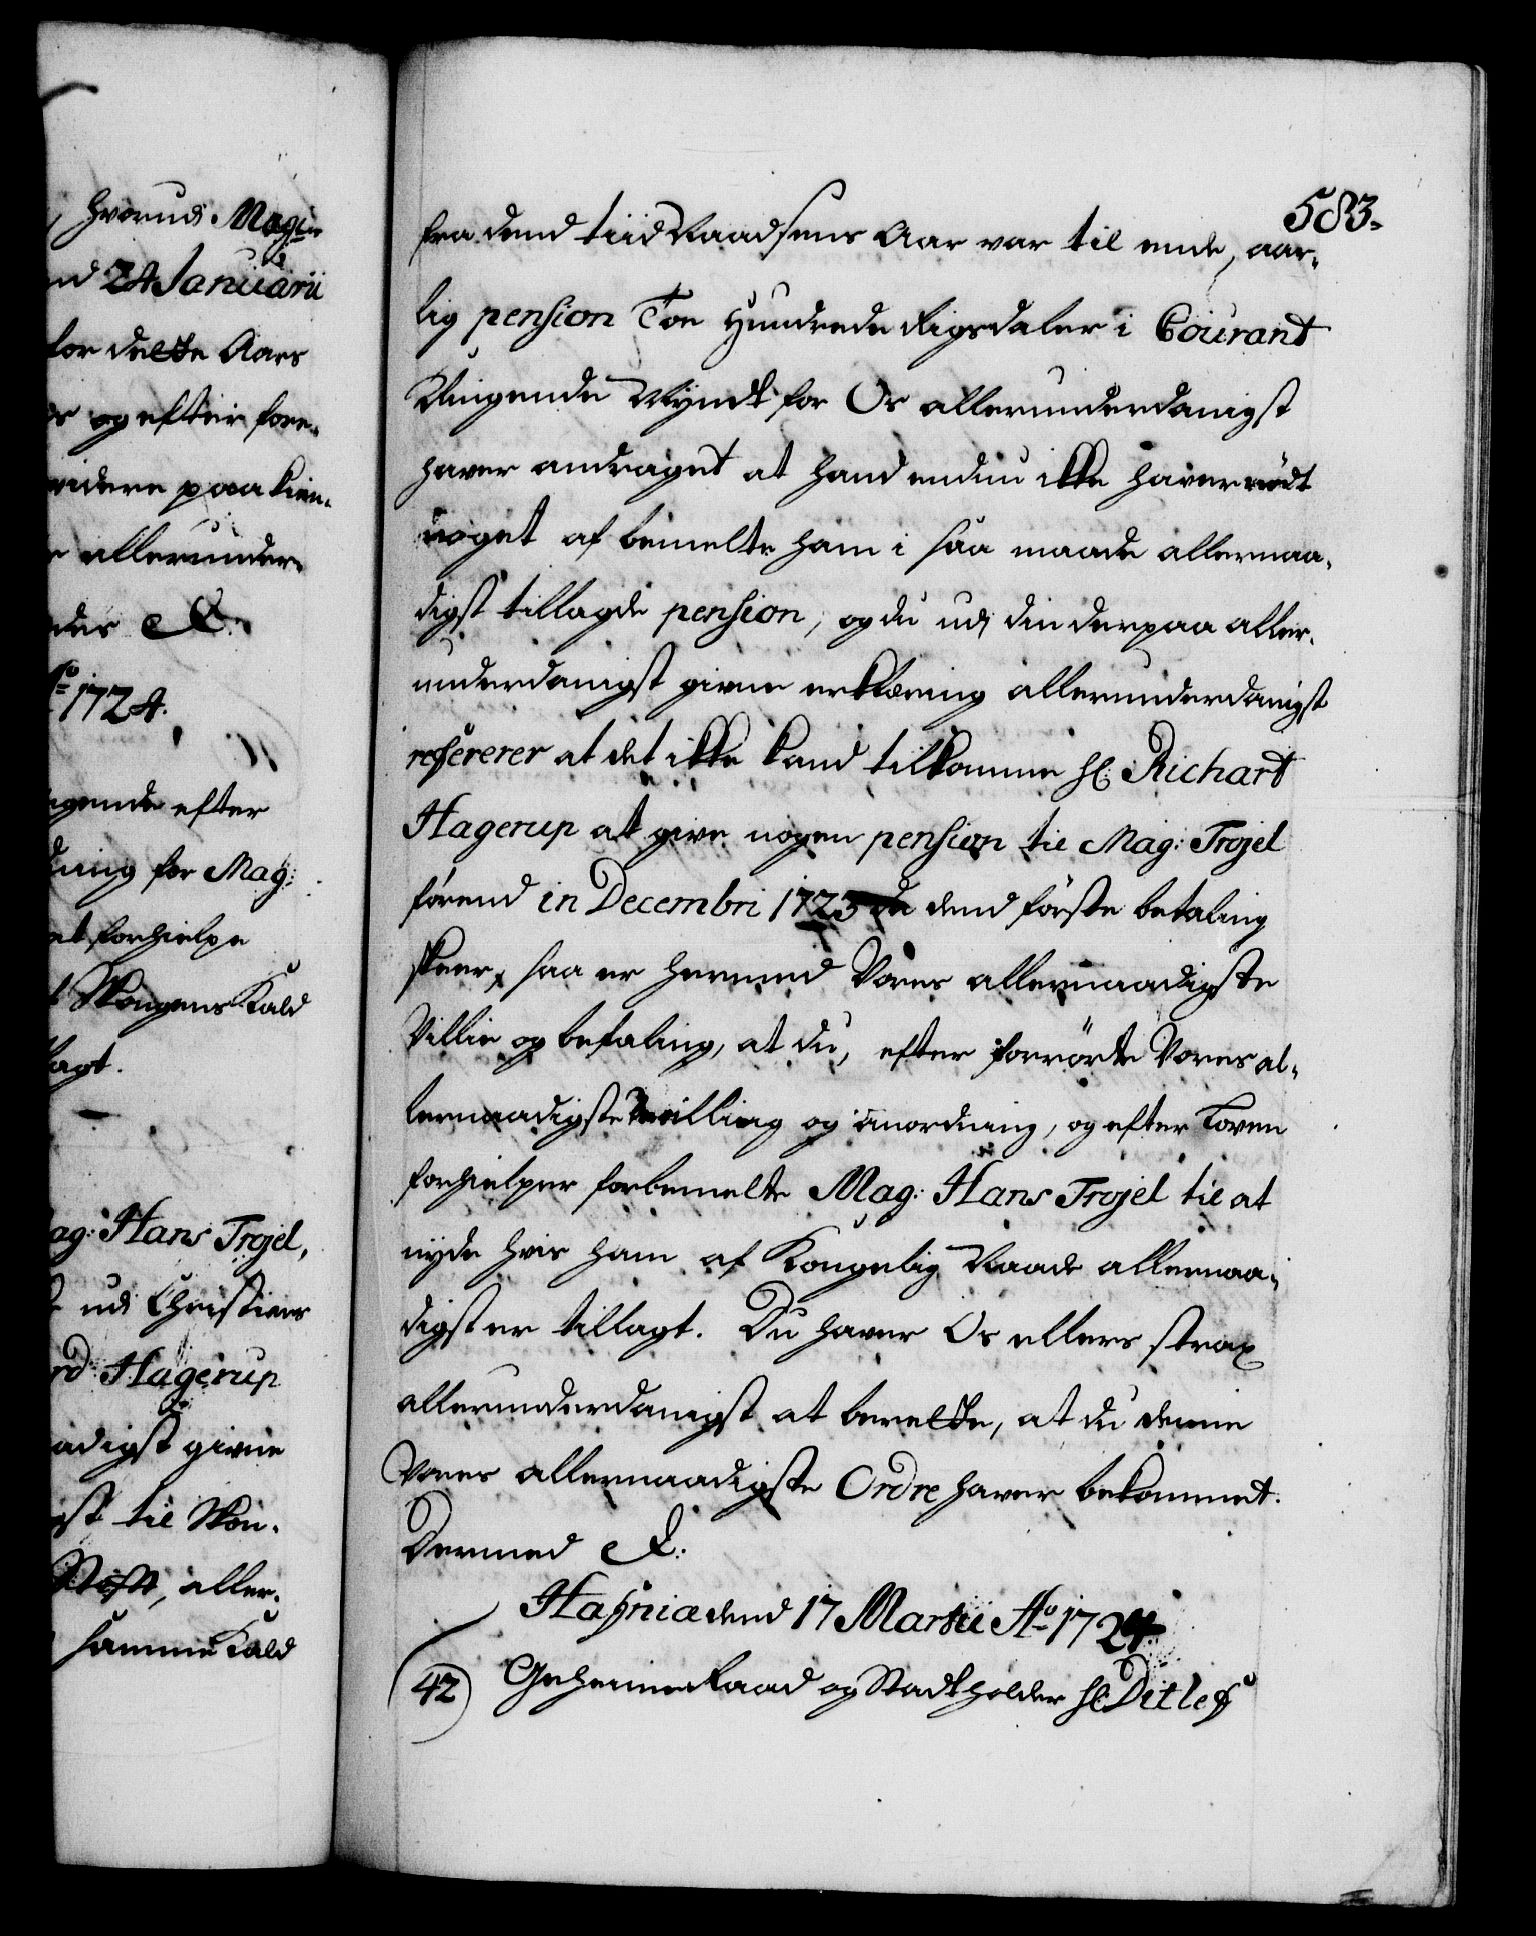 hvorudi Mag:
nd 24 Januarii
for dette Aars
og efter fore-
videre paakien-
allerunder-
des &c:
1724.
ngende efter
ning for Mag:
at forhielpe
Kald
lagt.
ag: Hans Trojel,
udi Christians
rd Hagerup
aadigst givne
til
Stift, aller-
samme Kald
583.
fra dend tiid Naadsens Aar var til ende, aar-
lig pension Toe Hundrede Rigsdaler i Courant
Klingende Myndt for Os allerunderdanigst
haver andraget at hand endnu ikke haver nödt
noget af bemelte ham i saa maade allernaa-
digst tillagde pension, og du udi din derpaa aller-
underdanigst givne erklæring allerunderdanigst
refererer at det ikke kand tilkomme Hr: Richart
Hagerup at give nogen pension til Mag: Trojel
förend in Decembri 1723 da dend förste betaling
skeer, saa er hermed Vores allernaadigste
Villie og befaling, at du, efter forrörte Vores al-
lernaadigste bevilling og anordning, og efter Loven
forhielper forbemelte Mag: Hans Trojel til at
nyde hvis ham af Kongelig Naade allernaa-
digst er tillagt. Du haver Os ellers strax
allerunderdanigst at berette, at du denne
Vores allernaadigste Ordre haver bekommet.
Dermed &c:
Hafniæ dend 17 Martii Ao 1724
42 Geheime Raad og Stadtholder Hr: Ditlef